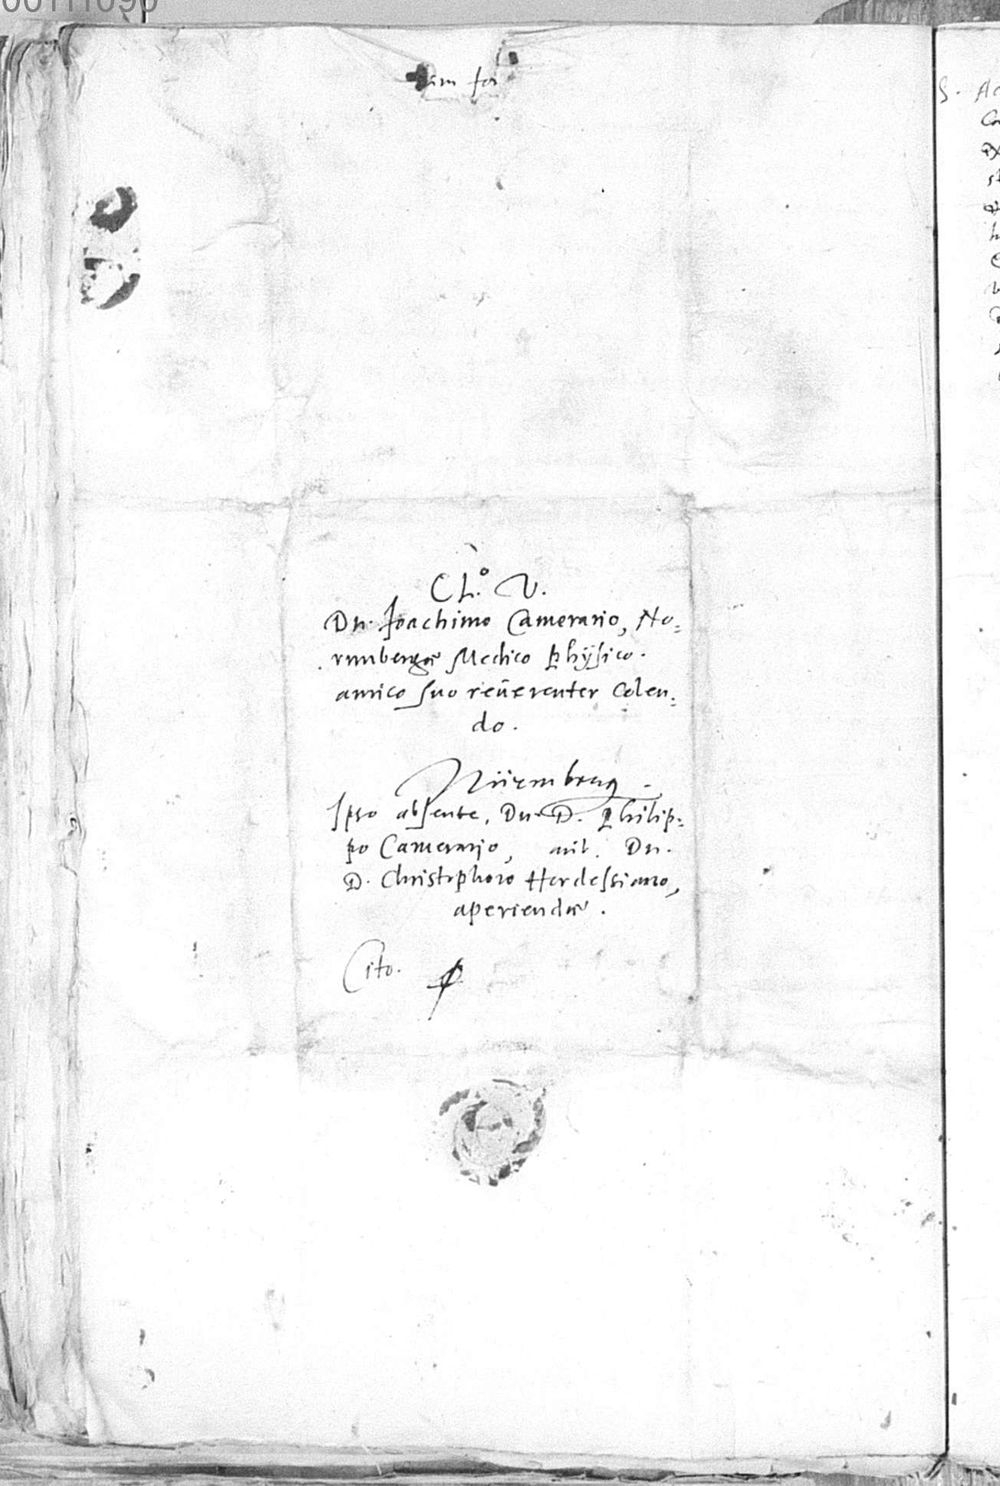 00111090
Cl.o V.
Dn. Joachimo Camerario, No-
rimbergæ Medico Physico.
amico suo reuerenter colen-
do.
Nürmberg.
Ipso absente, Dn. D. Philip-
po Camerario, aut. Dn.
D. Christophoro Herdessiano,
aperiendæ.
Cito.
S.